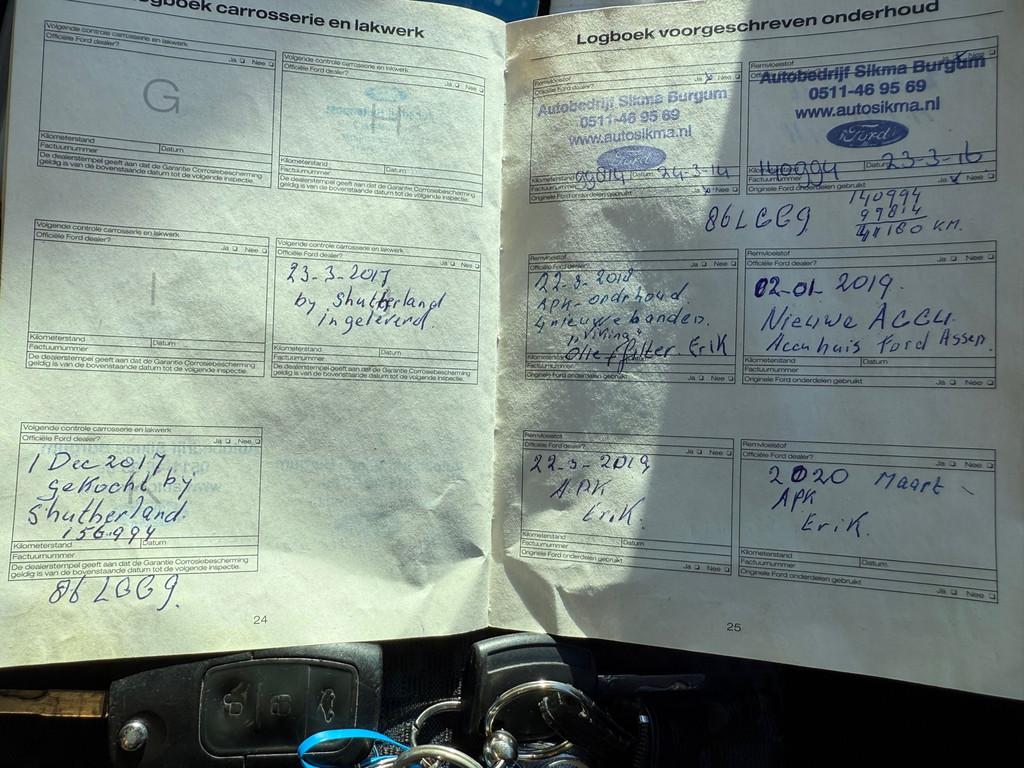 ogboek carrosserie en lakwerk
Volgende controle carrosserie en lakwerk
Officiële Ford dealer? Ja Nee
G
Kilometerstand
Factuurnummer Datum
De dealerstempel geeft aan dat de Garantie Corrosiebescherming
geldig is van de bovenstaande datum tot de volgende inspectie.
Volgende controle carrosserie en lakwerk
Officiële Ford dealer?
Ja Nee
H
Kilometerstand
Factuurnummer Datum
De dealerstempel geeft aan dat de Garantie Corrosiebescherming
geldig is van de bovenstaande datum tot de volgende inspectie.
Volgende controle carrosserie en lakwerk
Officiële Ford dealer?
Ja Nee
I
Kilometerstand
Factuurnummer Datum
De dealerstempel geeft aan dat de Garantie Corrosiebescherming
geldig is van de bovenstaande datum tot de volgende inspectie.
Volgende controle carrosserie en lakwerk
Officiële Ford dealer?
Ja Nee
23-3-2017
by Shutherland
ingeleverd.
Kilometerstand
Factuurnummer Datum
De dealerstempel geeft aan dat de Garantie Corrosiebescherming
geldig is van de bovenstaande datum tot de volgende inspectie.
Volgende controle carrosserie en lakwerk
Officiële Ford dealer? Ja Nee
1 Dec 2017
Gekocht by
Shutherland.
156994
K
Kilometerstand
Factuurnummer Datum
De dealerstempel geeft aan dat de Garantie Corrosiebescherming
geldig is van de bovenstaande datum tot de volgende inspectie.
86 LGG9.
24
Logboek voorgeschreven onderhoud
Remvloeistof Ja Nee
Officiële Ford dealer?
Autobedrijf Sikma Burgum
0511-46 95 69
www.autosikma.nl
Ford
Kilometerstand 99814
Factuurnummer Datum 24-3-14
Originele Ford onderdelen gebruikt Ja Nee
Remvloeistof Nee
Autobedrijf Sikma Burgum
0511-46 95 69
www.autosikma.nl
Ford
140994 Datum 23-3-16
Originele Ford onderdelen gebruikt Ja Nee
86LGG9
140994
99814
41180 KM.
Remvloeistof
Officiële Ford dealer? Ja Nee
22-3-2018
APK-onderhoud.
4 nieuwe banden.
"Viking"
Olie+filter Erik
Kilometerstand
Factuurnummer
Originele Ford onderdelen gebruikt Ja Nee
Remvloeistof
Officiële Ford dealer? Ja Nee
02-01-2019.
Nieuwe ACCU.
Accuhuis Ford Assen.
Kilometerstand
Factuurnummer Datum
Originele Ford onderdelen gebruikt Ja Nee
Remvloeistof
Officiële Ford dealer? Ja Nee
22-3-2019
APK
Erik.
Kilometerstand
Factuurnummer Datum
Originele Ford onderdelen gebruikt Ja Nee
Remvloeistof
Officiële Ford dealer? Ja Nee
2020 Maart
APK
Erik.
Kilometerstand
Factuurnummer Datum
Originele Ford onderdelen gebruikt Ja Nee
25